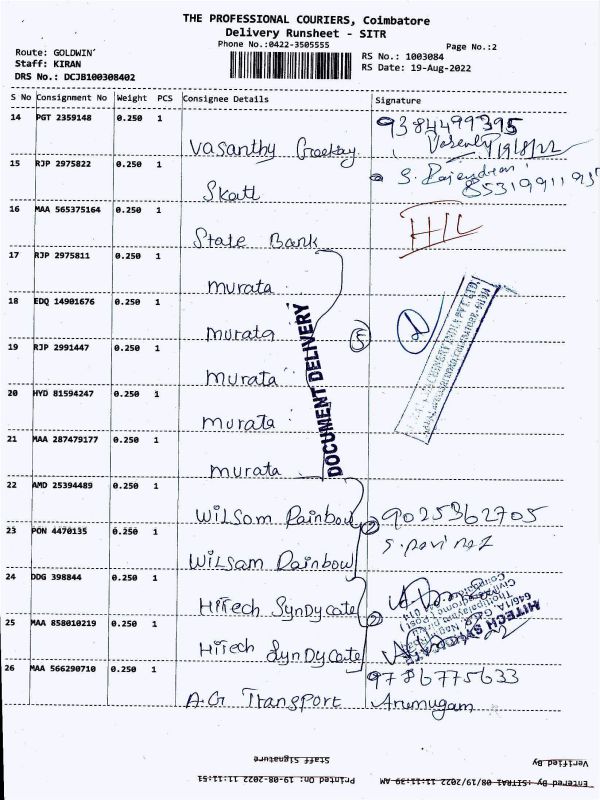 THE PROFESSIONAL COURIERS, Coimbatore
Delivery Runsheet - SITR
Phone No.:0422-3505555
Page No.:2
Route: GOLDWIN
Staff: KIRAN
DRS No.: DCJB100308402
RS No.: 1003084
RS Date: 19-Aug-2022
S No Consignment No Weight PCS Consignee Details Signature
14 PGT 2359148 0.250 1 9384499395
Vasanthy 19/8/22
15 RJP 2975822 0.250 1 S. Rajendran
Skatl
16 MAA 565375164 0.250 1
State Bank
17 RJP 2975811 0.250 1
murata
18 EDQ 14901676 0.250 1
murata
5
19 RJP 2991447 0.250 1
murata
20 HYD 81594247 0.250 1
murata
21 MAA 287479177 0.250 1
murata
DOCUMENT DELIVERY
22 AMD 25394489 0.250 1
Wilsom Rainbow 2 9025362705
23 PON 4470135 0.250 1
Wilsam Rainbow
24 DDG 398844 0.250 1
HiTech SynDycate 2
HITECH SYNDICATE
25 MAA 858010219 0.250 1
HiTech SynDycate
26 MAA 566290710 0.250 1 9786775633
A.G Transport Arumugam
Verified By
Staff Signature
Entered By :SITRA1 08/19/2022 11:11:39 AM
Printed On: 19-08-2022 11:11:51